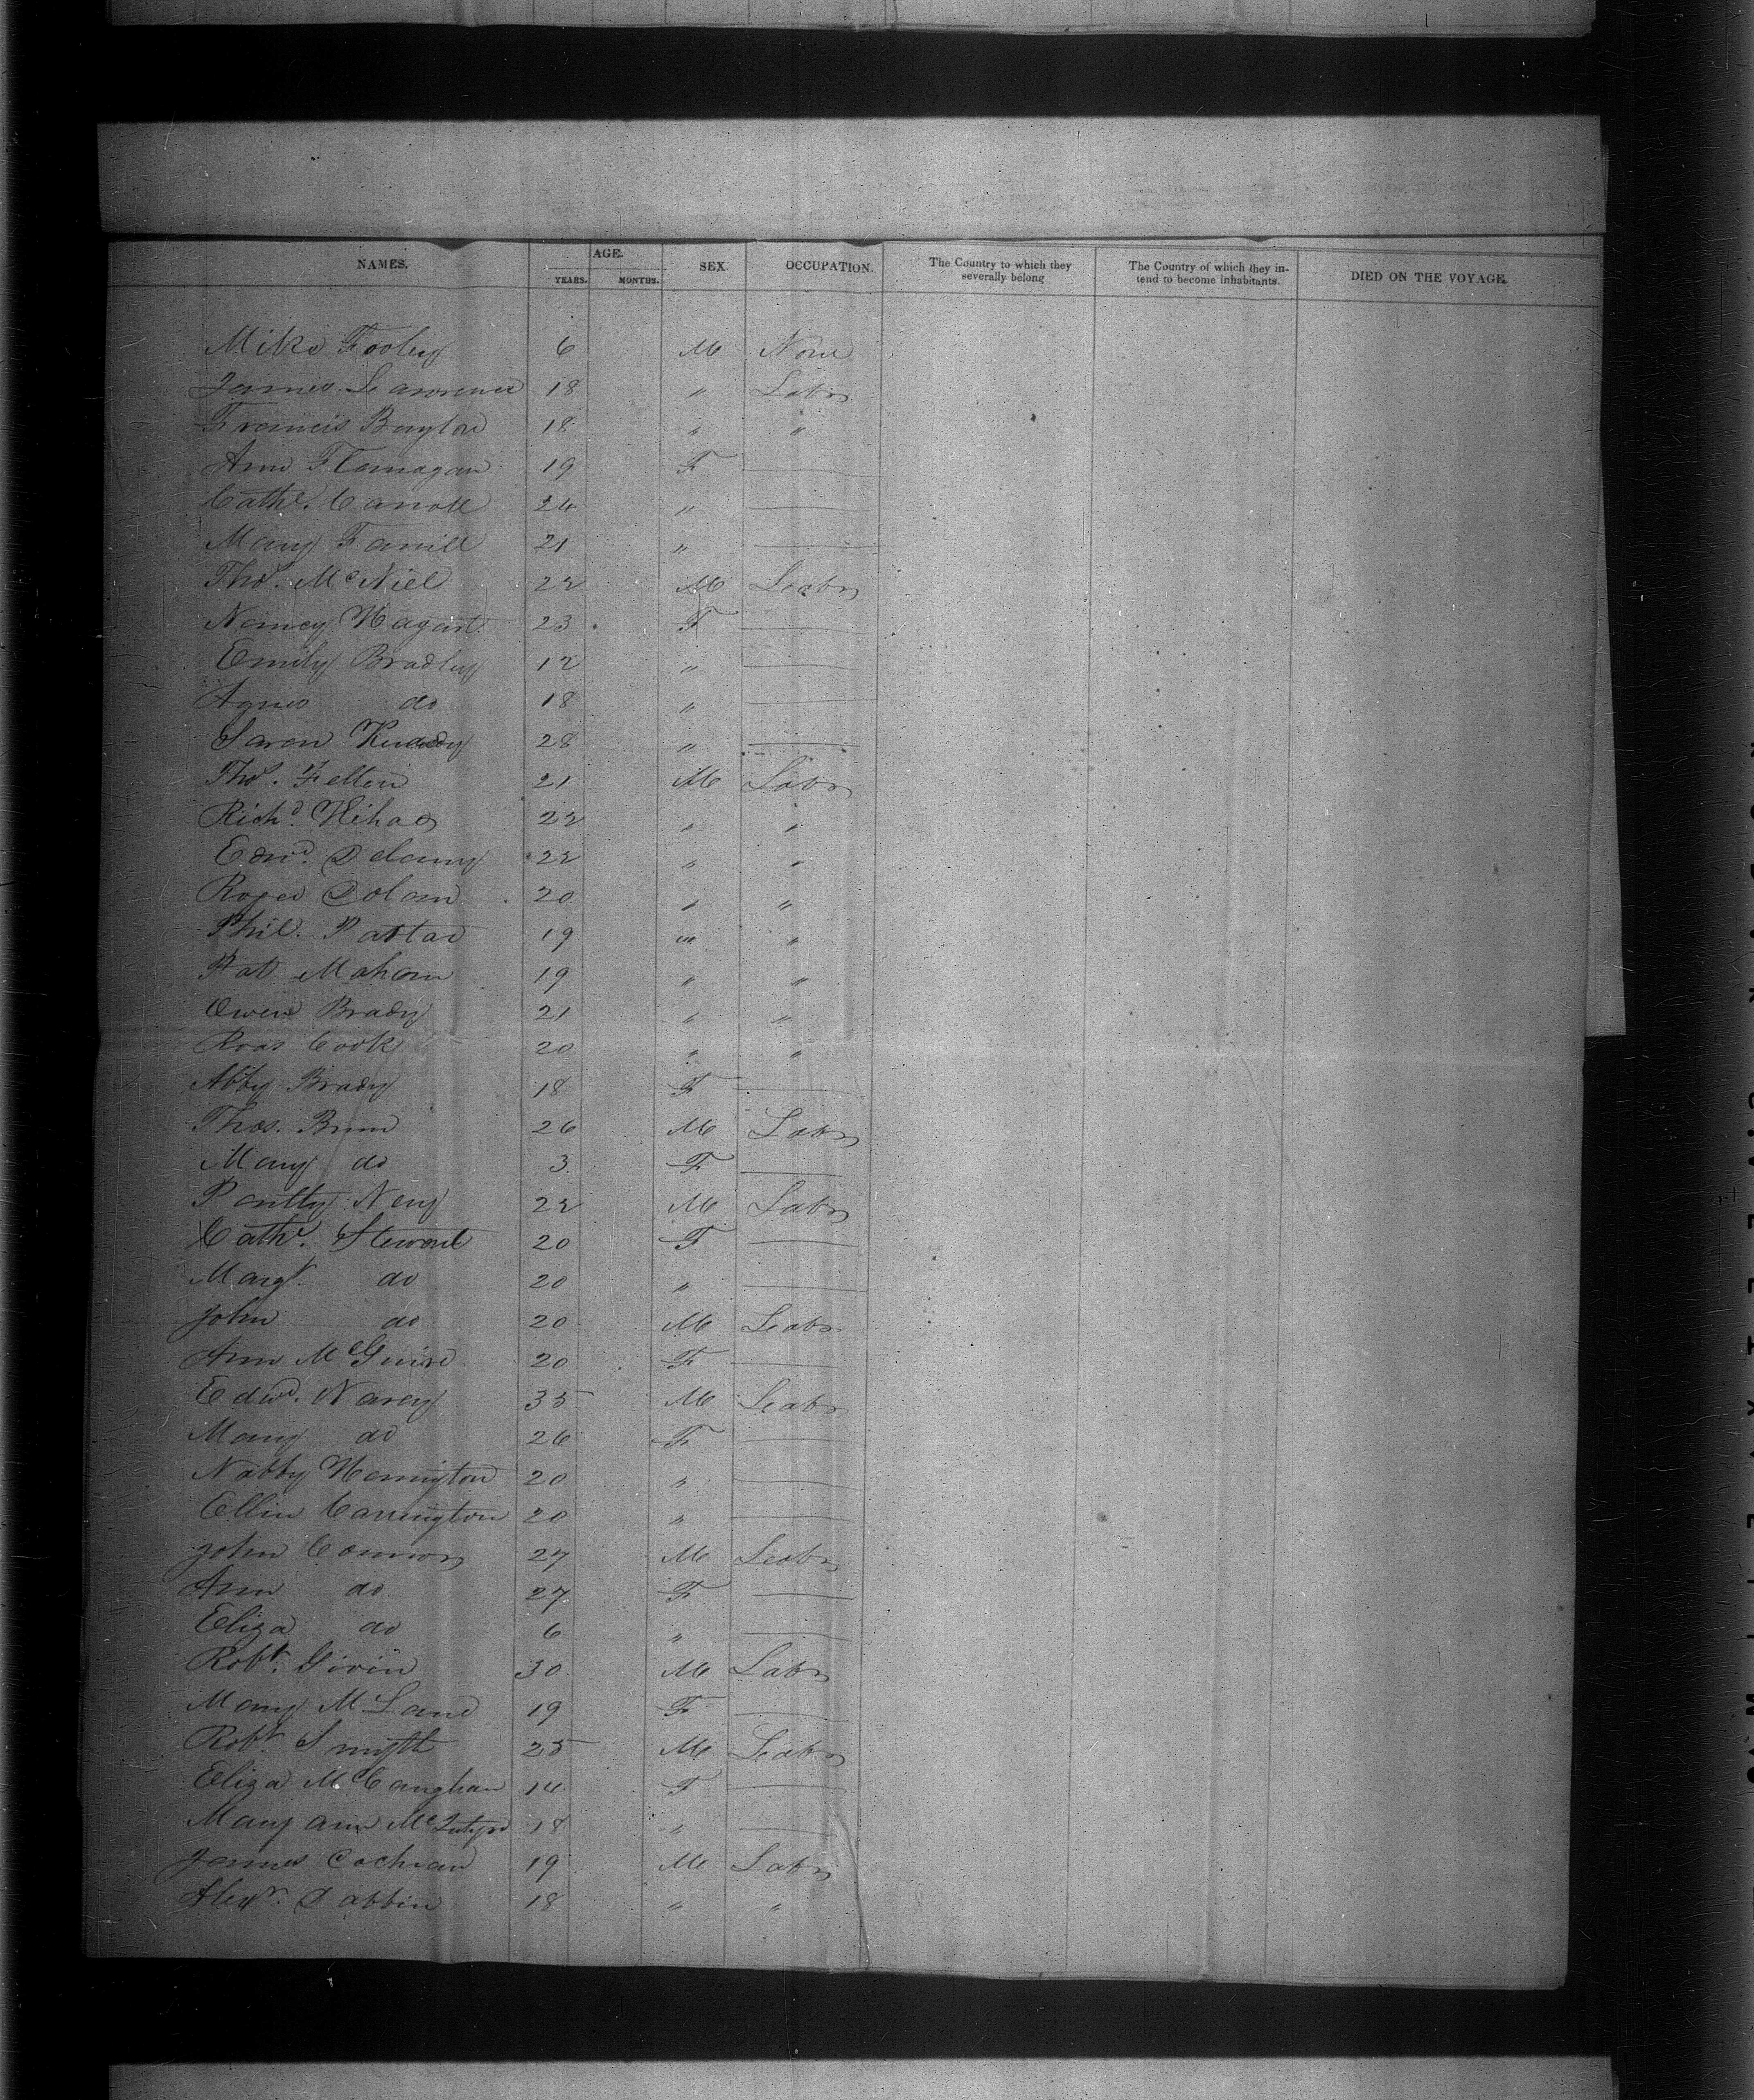 NAMES. AGE. SEX. OCCUPATION. The Country to which they severally belong The Country of which they intend to become inhabitants. DIED ON THE VOYAGE.
YEARS. MONTHS.
Mike Fooley 6 M None
James Lawrence 18 " Labr
Francis Boylan 18 " "
Ann Flanagan 19 F
Cathe. Carroll 24 "
Mary Farrill 21 "
Thos. McNiel 22 M Labr
Nancy Hagart 23 F
Emily Bradley 12 "
Agnes do 18 "
Saron Kenedy 28 "
Thos. Felton 21 M Labr
Richd. 22 " "
Edwd. Delany 22 " "
Roger Dolan 20 " "
Phil. 19 " "
Pat Mahon 19 " "
Owen Brady 21 " "
Roas Cook 20 " "
Abby Brady 18 F
Thos. Brun 26 M Labr
Mary do 3 F
Nery 22 M Labr
Cathe. Steward 20 F
Margt. do 20 "
John do 20 M Labr
Ann McGuire 20 F
Edwd. Narey 35 M Labr
Mary do 26 F
Nabby Harrington 20 "
Ellin Carrington 20 "
John Connors 27 M Labr
Ann do 27 F
Eliza do 6 "
Robt. Givin 30 M Labr
Mary McLane 19 F
Robt. Smyth 25 M Labr
Eliza McCaughan 14 F
Mary ann McIntyre 18 "
James Cochran 19 M Labr
Alexr. Dabbin 18 " "